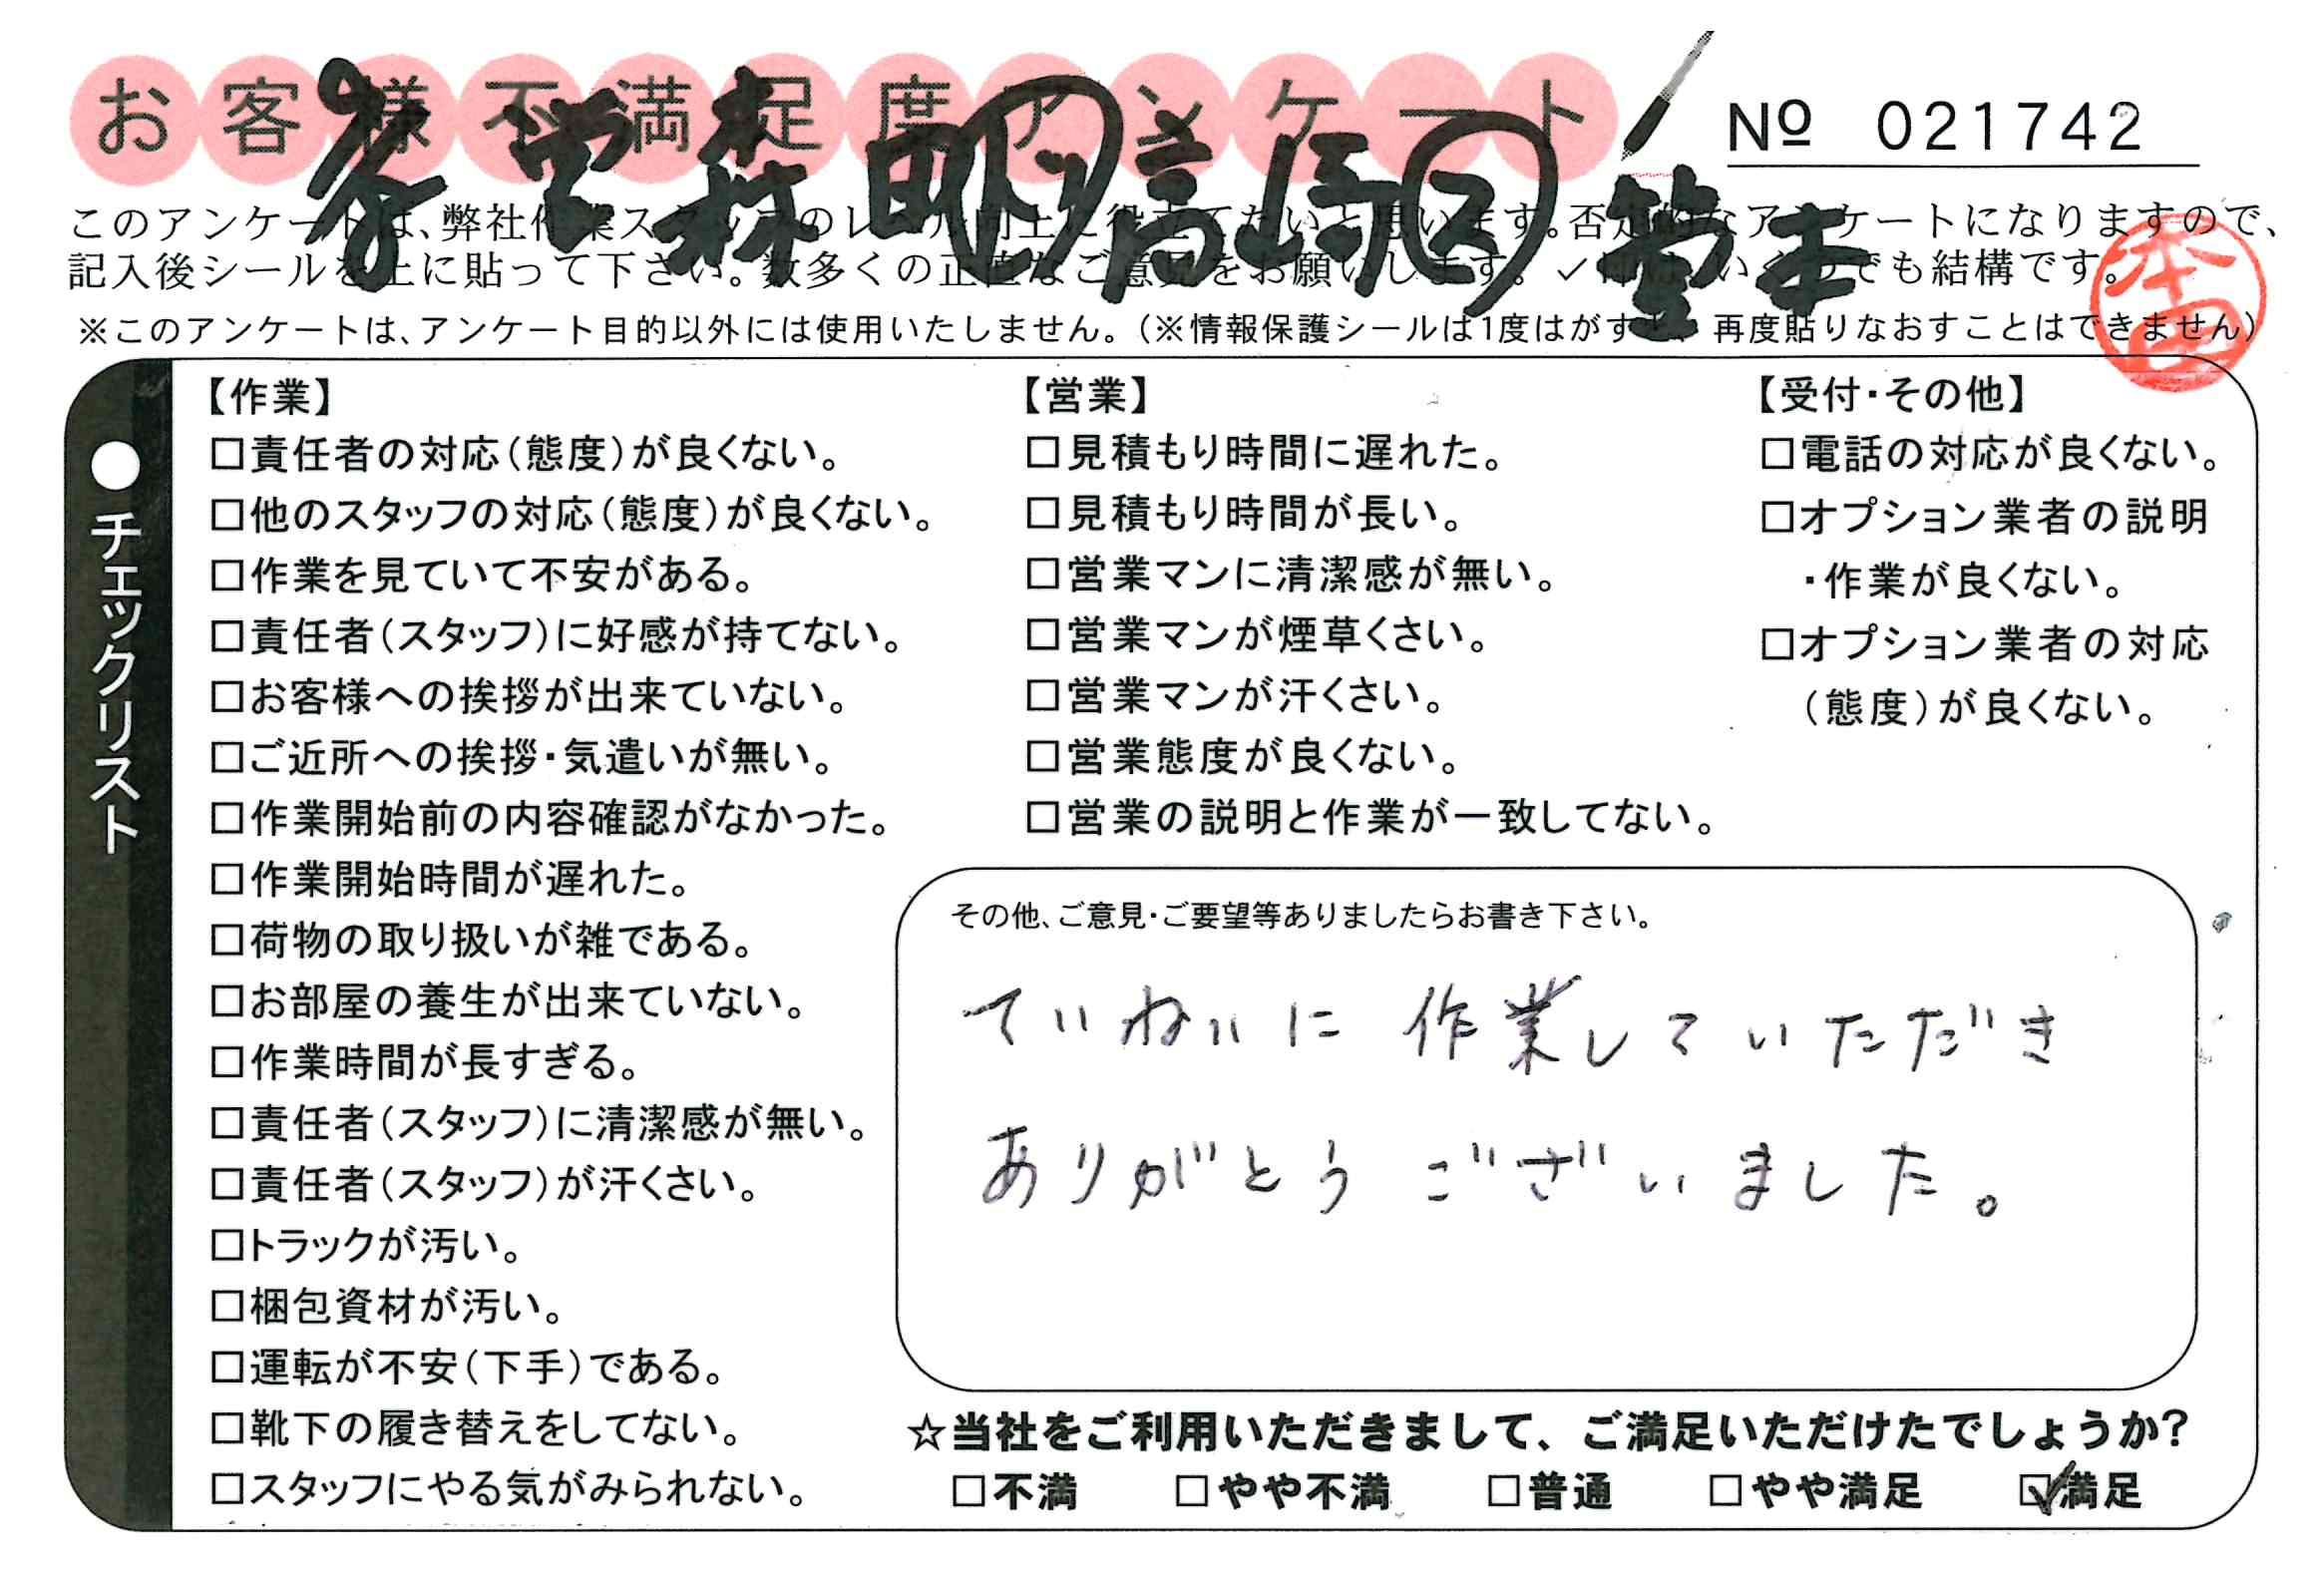 お客様不満足度アンケート
№ 021742
このアンケートは、弊社作業スタッフのレベル向上に役立てたいと思います。否定的なアンケートになりますので、
記入後シールを上に貼って下さい。数多くの正直なご意見をお願いします。✓印は、いくつでも結構です。
※このアンケートは、アンケート目的以外には使用いたしません。(※情報保護シールは1度はがすと、再度貼りなおすことはできません)
森 高崎 本
本田
●チェックリスト
【作業】
□責任者の対応(態度)が良くない。
□他のスタッフの対応(態度)が良くない。
□作業を見ていて不安がある。
□責任者(スタッフ)に好感が持てない。
□お客様への挨拶が出来ていない。
□ご近所への挨拶・気遣いが無い。
□作業開始前の内容確認がなかった。
□作業開始時間が遅れた。
□荷物の取り扱いが雑である。
□お部屋の養生が出来ていない。
□作業時間が長すぎる。
□責任者(スタッフ)に清潔感が無い。
□責任者(スタッフ)が汗くさい。
□トラックが汚い。
□梱包資材が汚い。
□運転が不安(下手)である。
□靴下の履き替えをしてない。
□スタッフにやる気がみられない。
【営業】
□見積もり時間に遅れた。
□見積もり時間が長い。
□営業マンに清潔感が無い。
□営業マンが煙草くさい。
□営業マンが汗くさい。
□営業態度が良くない。
□営業の説明と作業が一致してない。
【受付・その他】
□電話の対応が良くない。
□オプション業者の説明
・作業が良くない。
□オプション業者の対応
(態度)が良くない。
その他、ご意見・ご要望等ありましたらお書き下さい。
ていねいに 作業していただき
ありがとう ございました。
☆当社をご利用いただきまして、ご満足いただけたでしょうか?
□不満 □やや不満 □普通 □やや満足 ☑満足